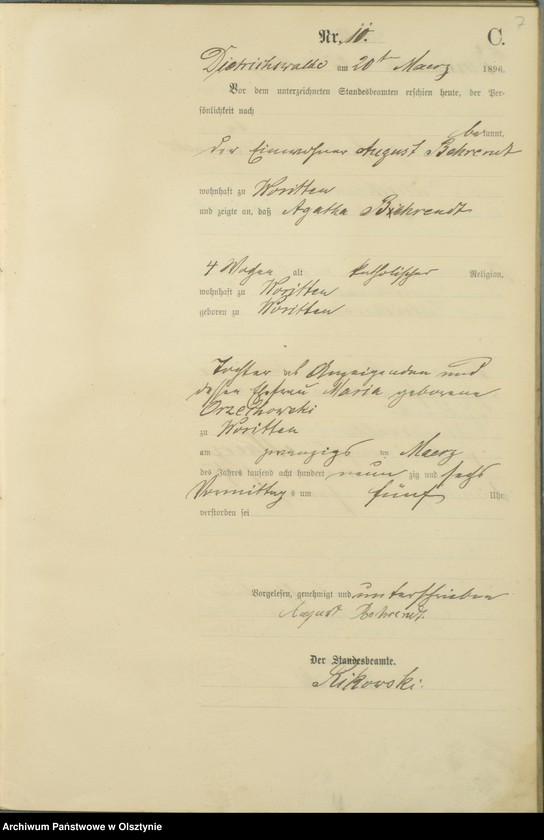 7
Nr. 10. C.
Dietrichswalde am 20t Maerz 1896.
Vor dem unterzeichneten Standesbeamten erschien heute, der Per-
sönlichkeit nach
bekannt,
der Einwohner August Behrendt
wohnhaft zu Woritten
und zeigte an, daß Agatha Behrendt
4 Wochen alt katholischer Religion,
wohnhaft zu Woritten
geboren zu Woritten
Tochter des Anzeigenden und
dessen Ehefrau Maria geborene
Orzechowski
zu Woritten
am zwanzigs ten Maerz
des Jahres tausend acht hundert neun zig und sechs
Vormittag s um fünf Uhr
verstorben sei
Vorgelesen, genehmigt und unterschrieben
August Behrendt.
Der Standesbeamte.
Rikowski.
Archiwum Państwowe w Olsztynie